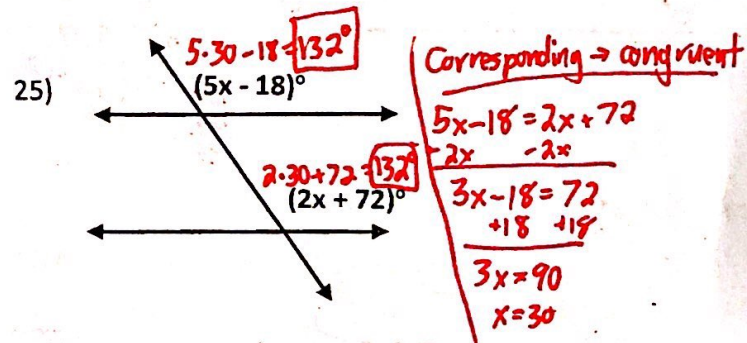 25)
5·30-18=132°
(5x - 18)°
2·30+72=132°
(2x + 72)°
Corresponding → congruent
5x-18=2x+72
-2x -2x
3x-18=72
+18 +18
3x=90
x=30